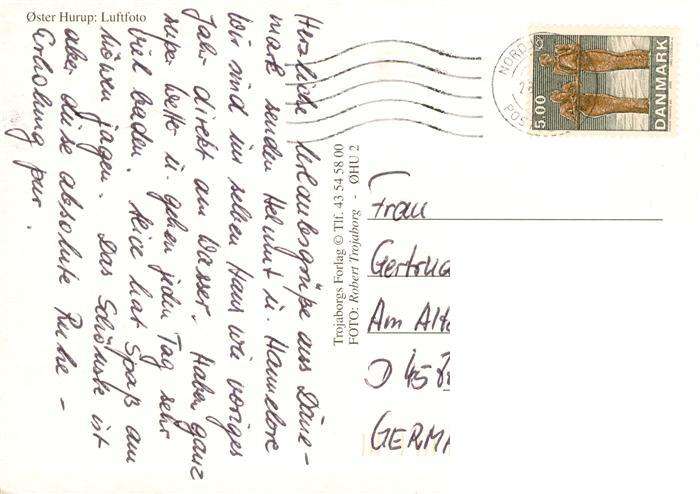 Øster Hurup: Luftfoto
Herzliche Urlaubsgrüße aus Däne-
mark senden Helmut u. Hannelore
Wir sind im selben Haus wie voriges
Jahr direkt am Wasser. Haben ganz
super Wetter u. gehen jeden Tag sehr
viel baden. Heice hat Spaß am
Möwen jagen. Das Schönste ist
aber diese absolute Ruhe -
Erholung pur.
Trojaborgs Forlag © Tlf. 43 54 58 00
FOTO: Robert Trojaborg - ØHU 2
5.00
DANMARK
NORD
POS
Frau
Gertrug
Am Alte
D 458
GERMA